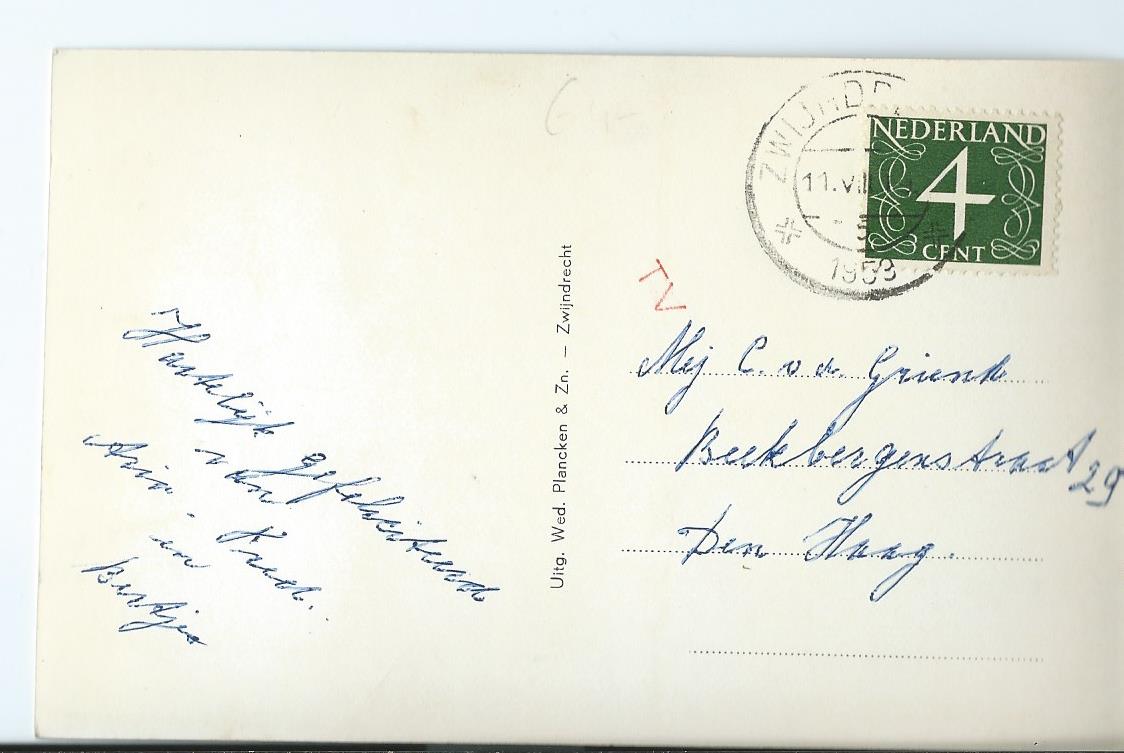 Hartelijk gefeliciteerd
van Truus.
Arin en
Bertjes
Uitg. Wed. Plancken & Zn. — Zwijndrecht
ZWIJNDR
11.VII
5
1953
NEDERLAND
4
CENT
TV
Mej C. v d. Grient
Beekbergenstraat 29
Den Haag.